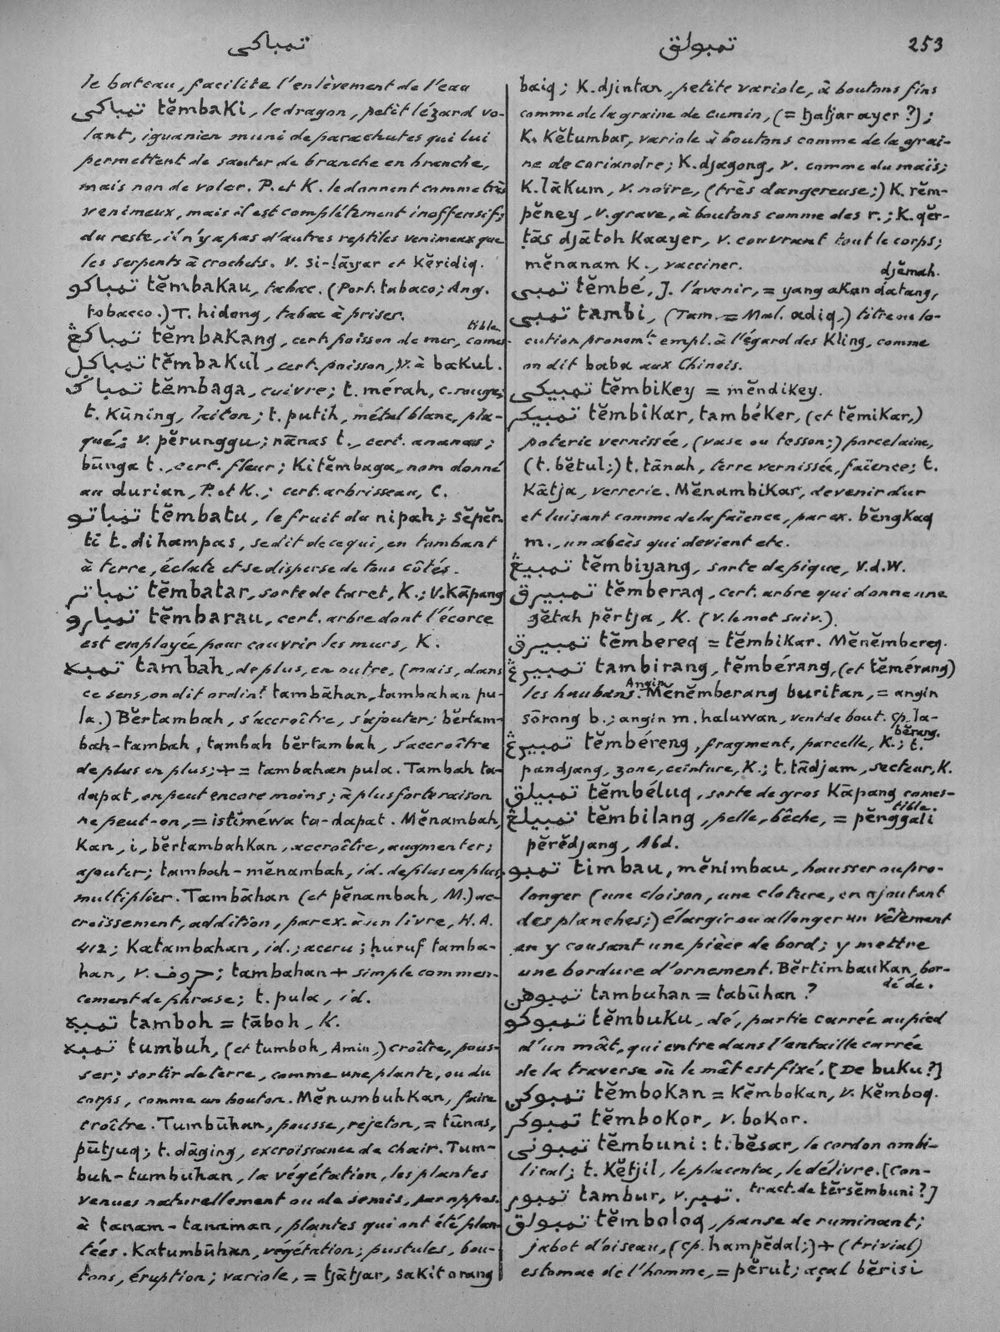 تمباكي
تمبولق
253
le bateau, facilite l'enlèvement de l'eau
تمباكي tĕmbaKi, le dragon, petit lézard vo-
lant, iguanien muni de parachutes qui lui
permettent de sauter de branche en branche,
mais non de voler. P. et K. le donnent comme très
venimeux, mais il est complètement inoffensif;
du reste, il n'y a pas d'autres reptiles venimeux que
les serpents à crochets. V. si-lāyar et Kĕridiq.
تمباكو tĕmbaKau, tabac. (Port. tabaco; Ang.
tobacco.) T. hidong, tabac à priser.
تمباكڠ tĕmbaKang, cert. poisson de mer, comes-
tible.
تمباكل tĕmbaKul, cert. poisson, V. à baKul.
تمباݢ tĕmbaga, cuivre; t. mérah, c. rouge;
t. Kūning, laiton; t. putih, métal blanc, pla-
qué; v. pĕrunggu; nānas t., cert. ananas;
būnga t., cert. fleur; Ki tĕmbaga, nom donné
au durian, P. et K.; cert. arbrisseau, C.
تمباتو tĕmbatu, le fruit du nipah; sĕpĕr-
ti t. di hampas, se dit de ce qui, en tombant
à terre, éclate et se disperse de tous côtés.
تمباتر tĕmbatar, sorte de taret, K.; V. Kāpang
تمبارو tĕmbarau, cert. arbre dont l'écorce
est employée pour couvrir les murs, K.
تمبه tambah, de plus, en outre, (mais, dans
ce sens, on dit ordint tambāhan, tambahan pu-
la.) Bĕrtambah, s'accroître, s'ajouter; bĕrtam-
bah-tambah, tambah bĕrtambah, s'accroître
de plus en plus; + = tambahan pula. Tambah ta-
dapat, on peut encore moins; à plus forte raison
ne peut-on, = istiméwa ta-dapat. Mĕnambah,
Kan, i, bĕrtambahKan, accroître, augmenter;
ajouter; tambah-mĕnambah, id. de plus en plus,
multiplier. Tambāhan (et pĕnambah, M.) ac-
croissement, addition, par ex. à un livre, H.A.
412; Katambahan, id.; accru; huruf tamba-
han, v. حروف; tambahan + simple commen-
cement de phrase; t. pula, id.
تمبه tamboh = tāboh, K.
تمبه tumbuh, (et tumboh, Amin,) croître, pous-
ser; sortir de terre, comme une plante, ou du
corps, comme un bouton. MĕnumbuhKan, faire
croître. Tumbūhan, pousse, rejeton, = tūnas,
pūtjuq; t. dāging, excroissance de chair. Tum-
buh-tumbuhan, la végétation, les plantes
venues naturellement ou de semis, par oppos.
à tanam-tanaman, plantes qui ont été plan-
tées. Katumbūhan, végétation; pustules, bou-
tons, éruption; variole, = tjātjar, saKit orang
baiq; K. djintan, petite variole, à boutons fins
comme de la graine de cumin, (= tjatjar ayer ?);
K. Kĕtumbar, variole à boutons comme de la grai-
ne de coriandre; K. djagong, v. comme du maïs;
K. lāKum, v. noire, (très dangereuse;) K. rĕm-
pĕney, v. grave, à boutons comme des r.; K. qĕr-
ṭās djātoh Kaayer, v. couvrant tout le corps;
mĕnanam K., vacciner.
djĕmah.
تمبي tĕmbé, J. l'avenir, = yang aKan datang,
تمبي tambi, (Tam. = Mal. adiq,) titre ou lo-
cution pronomle empl. à l'égard des Kling, comme
on dit baba aux Chinois.
تمبيكي tĕmbiKey = mĕndiKey.
تمبيكر tĕmbiKar, tambéKer, (et tĕmiKar,)
poterie vernissée, (vase ou tesson;) porcelaine,
(t. bĕtul;) t. tānah, terre vernissée, faïence; t.
Kātja, verrerie. MĕnambiKar, devenir dur
et luisant comme de la faïence, par ex. bĕngKaq
m., un abcès qui devient etc.
تمبيڠ tĕmbiyang, sorte de pique, V.d.W.
تمبيرق tĕmberaq, cert. arbre qui donne une
gĕtah pĕrtja, K. (V. le mot suiv.).
تمبيرق tĕmbereq = tĕmbiKar. Mĕnĕmbereq.
تمبيرڠ tambirang, tĕmbérang, (et tĕmérang)
les haubans. Angin Mĕnĕmberang buritan, = angin
sōrong b.; angin m. haluwan, vent de bout. Cp. la-
bĕrang.
تمبيرڠ tĕmbéreng, fragment, parcelle, K.; t.
pandjang, zone, ceinture, K.; t. tādjam, secteur, K.
تمبيلق tĕmbéluq, sorte de gros Kāpang comes-
tible.
تمبيلڠ tĕmbilang, pelle, bêche, = pĕnggali
pĕrĕdjang, Abd.
تمبو timbau, mĕnimbau, hausser ou pro-
longer (une cloison, une cloture, en ajoutant
des planches;) élargir ou allonger un vêtement
en y cousant une pièce de bord; y mettre
une bordure d'ornement. BĕrtimbauKan, bor-
dé de.
تمبوهن tambuhan = tabūhan ?
تمبوكو tĕmbuKu, dé, partie carrée au pied
d'un mât, qui entre dans l'entaille carrée
de la traverse où le mât est fixé. [De buKu ?]
تمبوكن tĕmboKan = KĕmboKan, V. Kĕmboq.
تمبوكر tĕmboKor, V. boKor.
تمبوني tĕmbuni: t. bĕsar, le cordon ombi-
lical; t. Kĕtjil, le placenta, le délivre. [Con-
tract. de tĕrsĕmbuni ?]
تمبور tambur, v. تمبر.
تمبولق tĕmboloq, panse de ruminant;
jabot d'oiseau, (cp. hampĕdal;) + (trivial)
estomac de l'homme, = pĕrut; açal bĕrisi